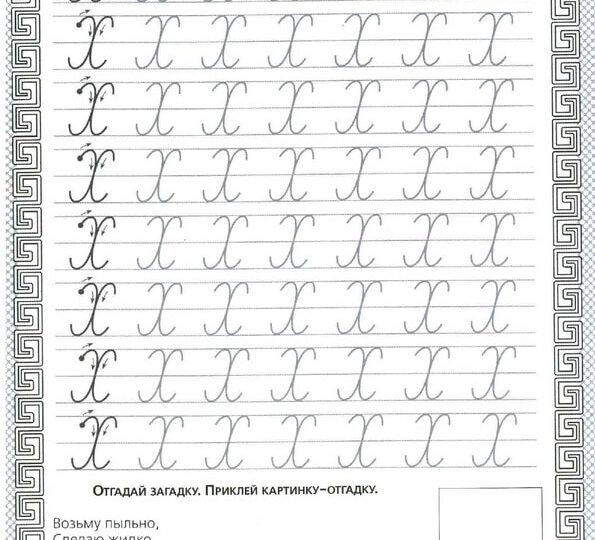 Х Х Х Х Х Х Х
Х Х Х Х Х Х Х
Х Х Х Х Х Х Х
Х Х Х Х Х Х Х
Х Х Х Х Х Х Х
Х Х Х Х Х Х Х
Х Х Х Х Х Х Х
Отгадай загадку. Приклей картинку-отгадку.
Возьму пыльно,
Сделаю жидко